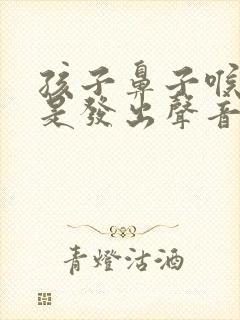 孩子鼻子喉
是發出聲音
青燈沽酒